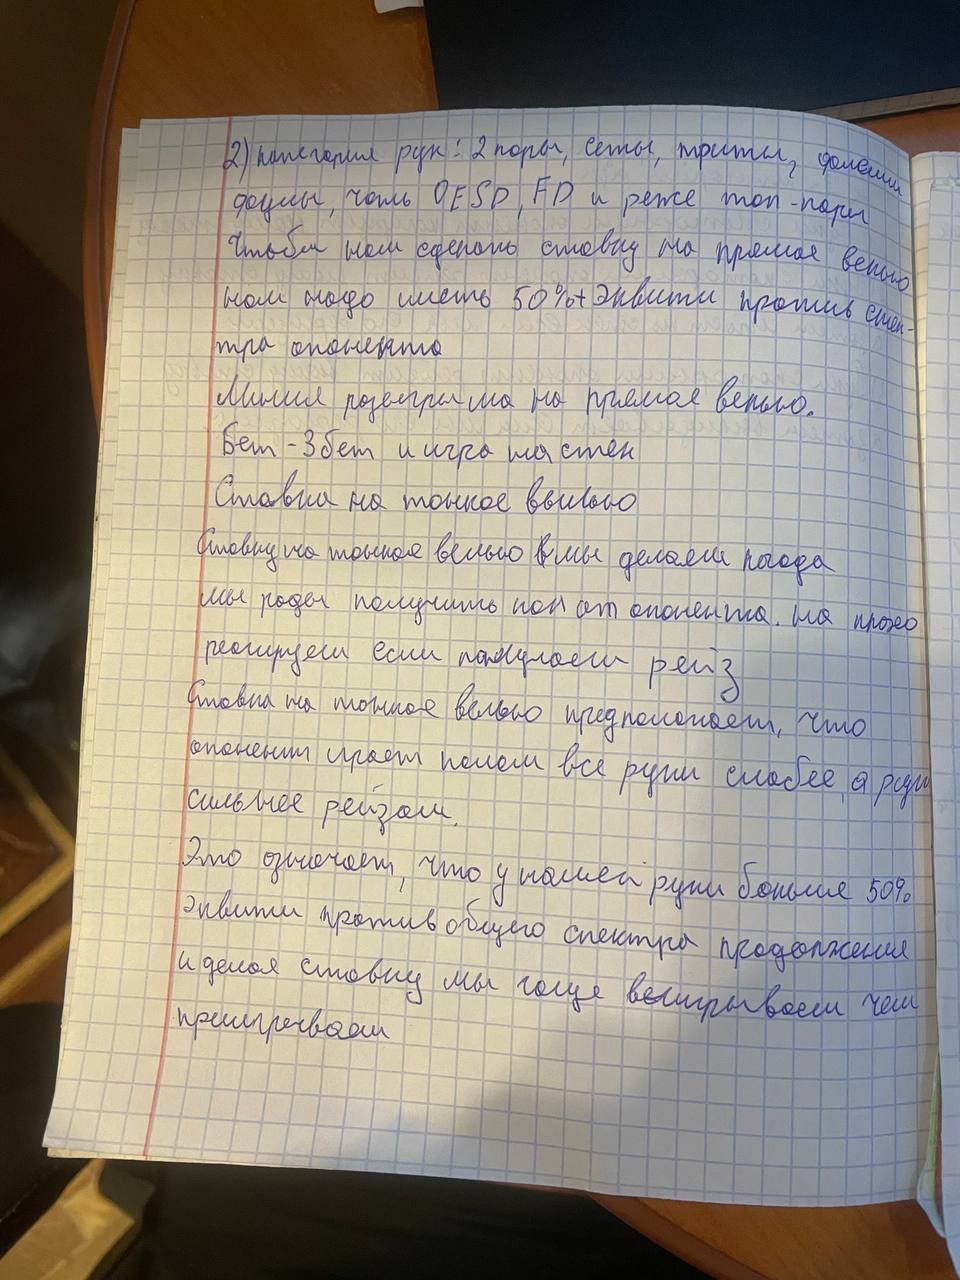 2) категория рук: 2 пары, сеты, триты,
часть OESD, FD и реже топ-пары
Чтобы нам сделать ставку на прямое велью
нам надо иметь 50%+ эквити против спек-
тра опонента
Линия розыгрыша на прямое велью.
Бет - 3бет и игра на стек
Ставка на тонкое вылью
Ставку на тонкое велью мы делаем когда
мы рады получить кол от опонента. на плохо
реагируем если получаем рейз
Ставка на тонкое велью предполагает, что
опонент играет колом все руки слабее, а руки
сильнее рейзом.
Это означает, что у нашей руки больше 50%
эквити против общего спектра продолжения
и делая ставку мы чаще выигрываем чем
проигрываем